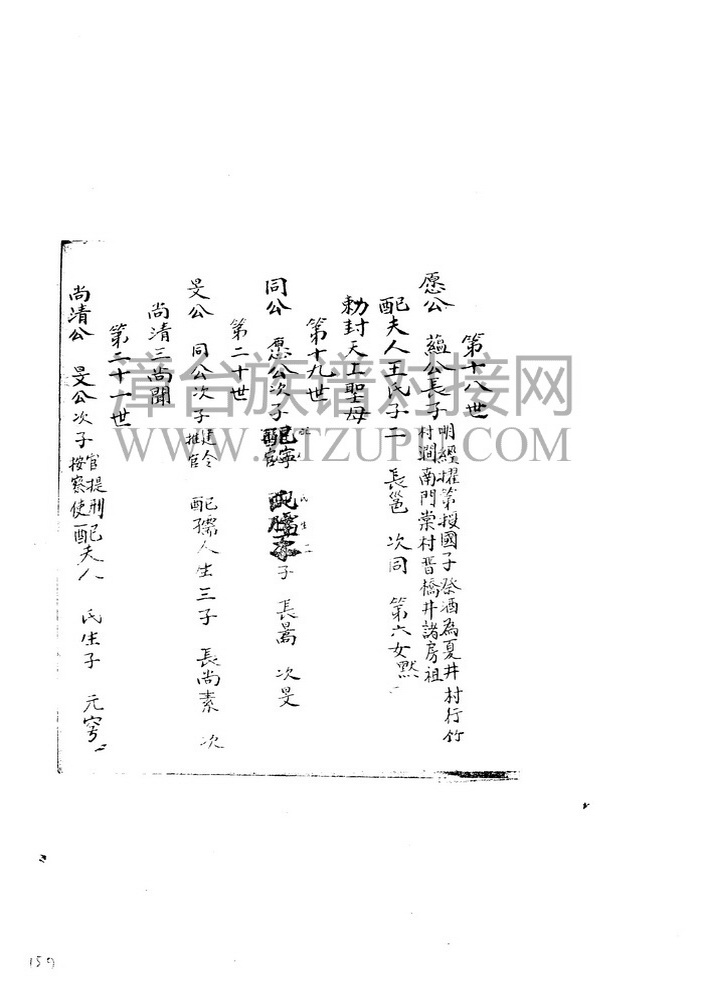 第十八世
愿公 蘊公長子 明經擢第授國子祭酒為夏井村行竹村澗南門棠村晋橋井諸房祖
配夫人王氏子二 長邕 次同 第六女默
勅封天工聖母
第十九世
同公 愿公次子 配 子 長暠 次旻
第二十世
旻公 同公次子 建令推官 配孺人生三子 長尚素 次
尚清三尚聞
第二十一世
尚清公 旻公次子 官提刑按察使 配夫人 氏生子 元
漳台族谱对接网
WWW.ZTZUPU.COM
159